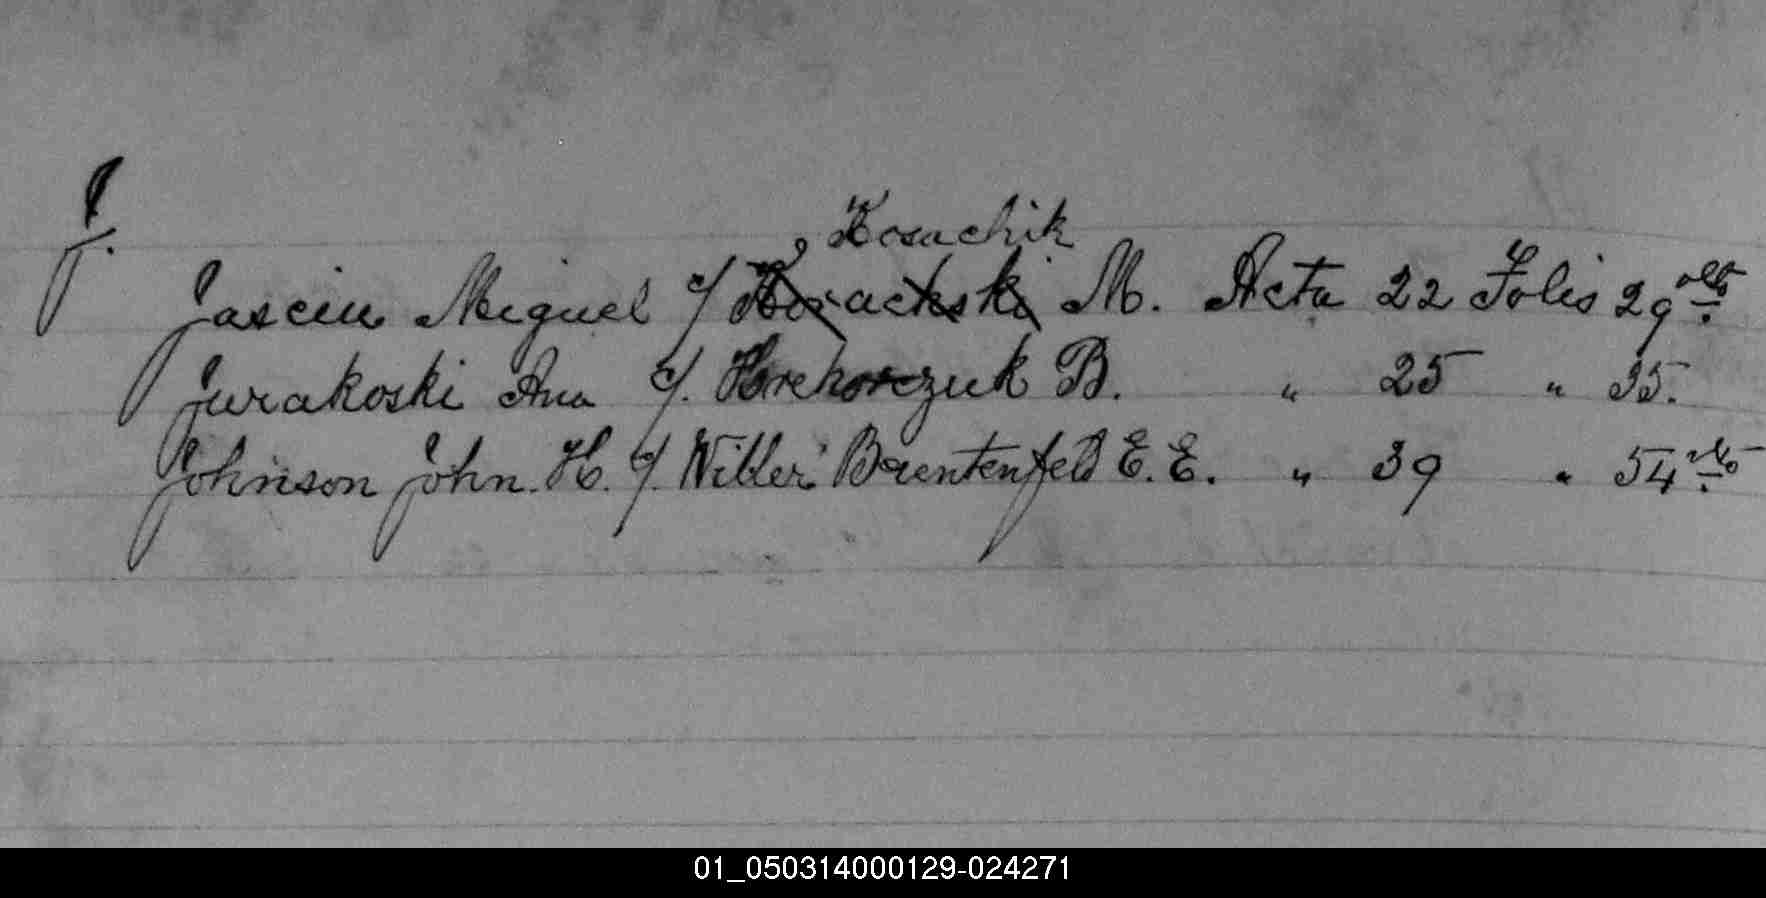 J.
Kosachik
Jasciu Miguel c/ Kozachski M. Acta 22 Folio 29 vlto
Jurakoski Ana c/. Hrehorczuk B. " 25 " 35.
Johnson John. H. c/. Willer Brentenfeld E. E. " 39 " 54 vlto
01_050314000129-024271